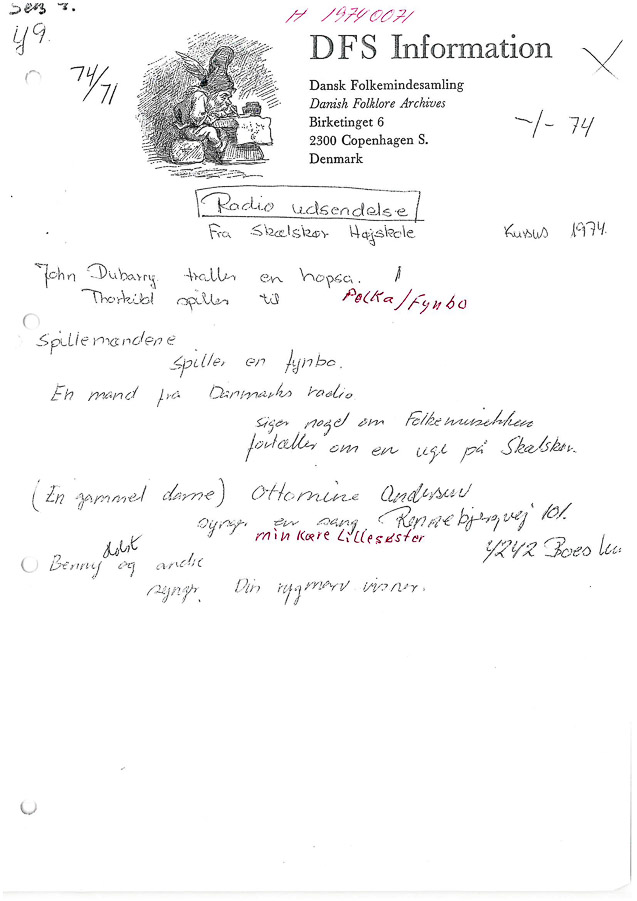 H 19740071
49.
74/71
DFS Information
Dansk Folkemindesamling
Danish Folklore Archives
Birketinget 6
2300 Copenhagen S.
Denmark
-/- 74
Radio udsendelse
Fra Skælskør Højskole
Kursus 1974.
John Dubarry traller en hopsa.
Thorkild spiller til Polka/Fynbo
Spillemændene
spiller en fynbo.
En mand fra Danmarks radio
siger noget om Folkemusikken
fortæller om en uge på Skælskør.
(En gammel dame) Ottomine Andersen
synger en sang Rennebjergvej 101.
min kære Lillesøster
4242 Boeslu
Benny og andre
synger. Din rygmarv visner.